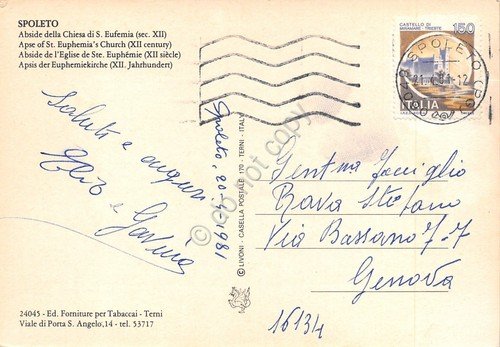 SPOLETO
Abside della Chiesa di S. Eufemia (sec. XII)
Apse of St. Euphemia's Church (XII century)
Abside de l'Eglise de Ste. Euphémie (XII siècle)
Apsis der Euphemiekirche (XII. Jahrhundert)
CASTELLO DI
MIRAMARE - TRIESTE
150
ITALIA
SPOLETO
Saluti e auguri
e Gavina
Spoleto, 20-4-1981
© LIVONI - CASELLA POSTALE 170 - TERNI - ITALY
do not copy
Gent.ma
Rava Stefano
Via Bassano 7-7
Genova
16134
24045 - Ed. Forniture per Tabaccai - Terni
Viale di Porta S. Angelo, 14 - tel. 53717